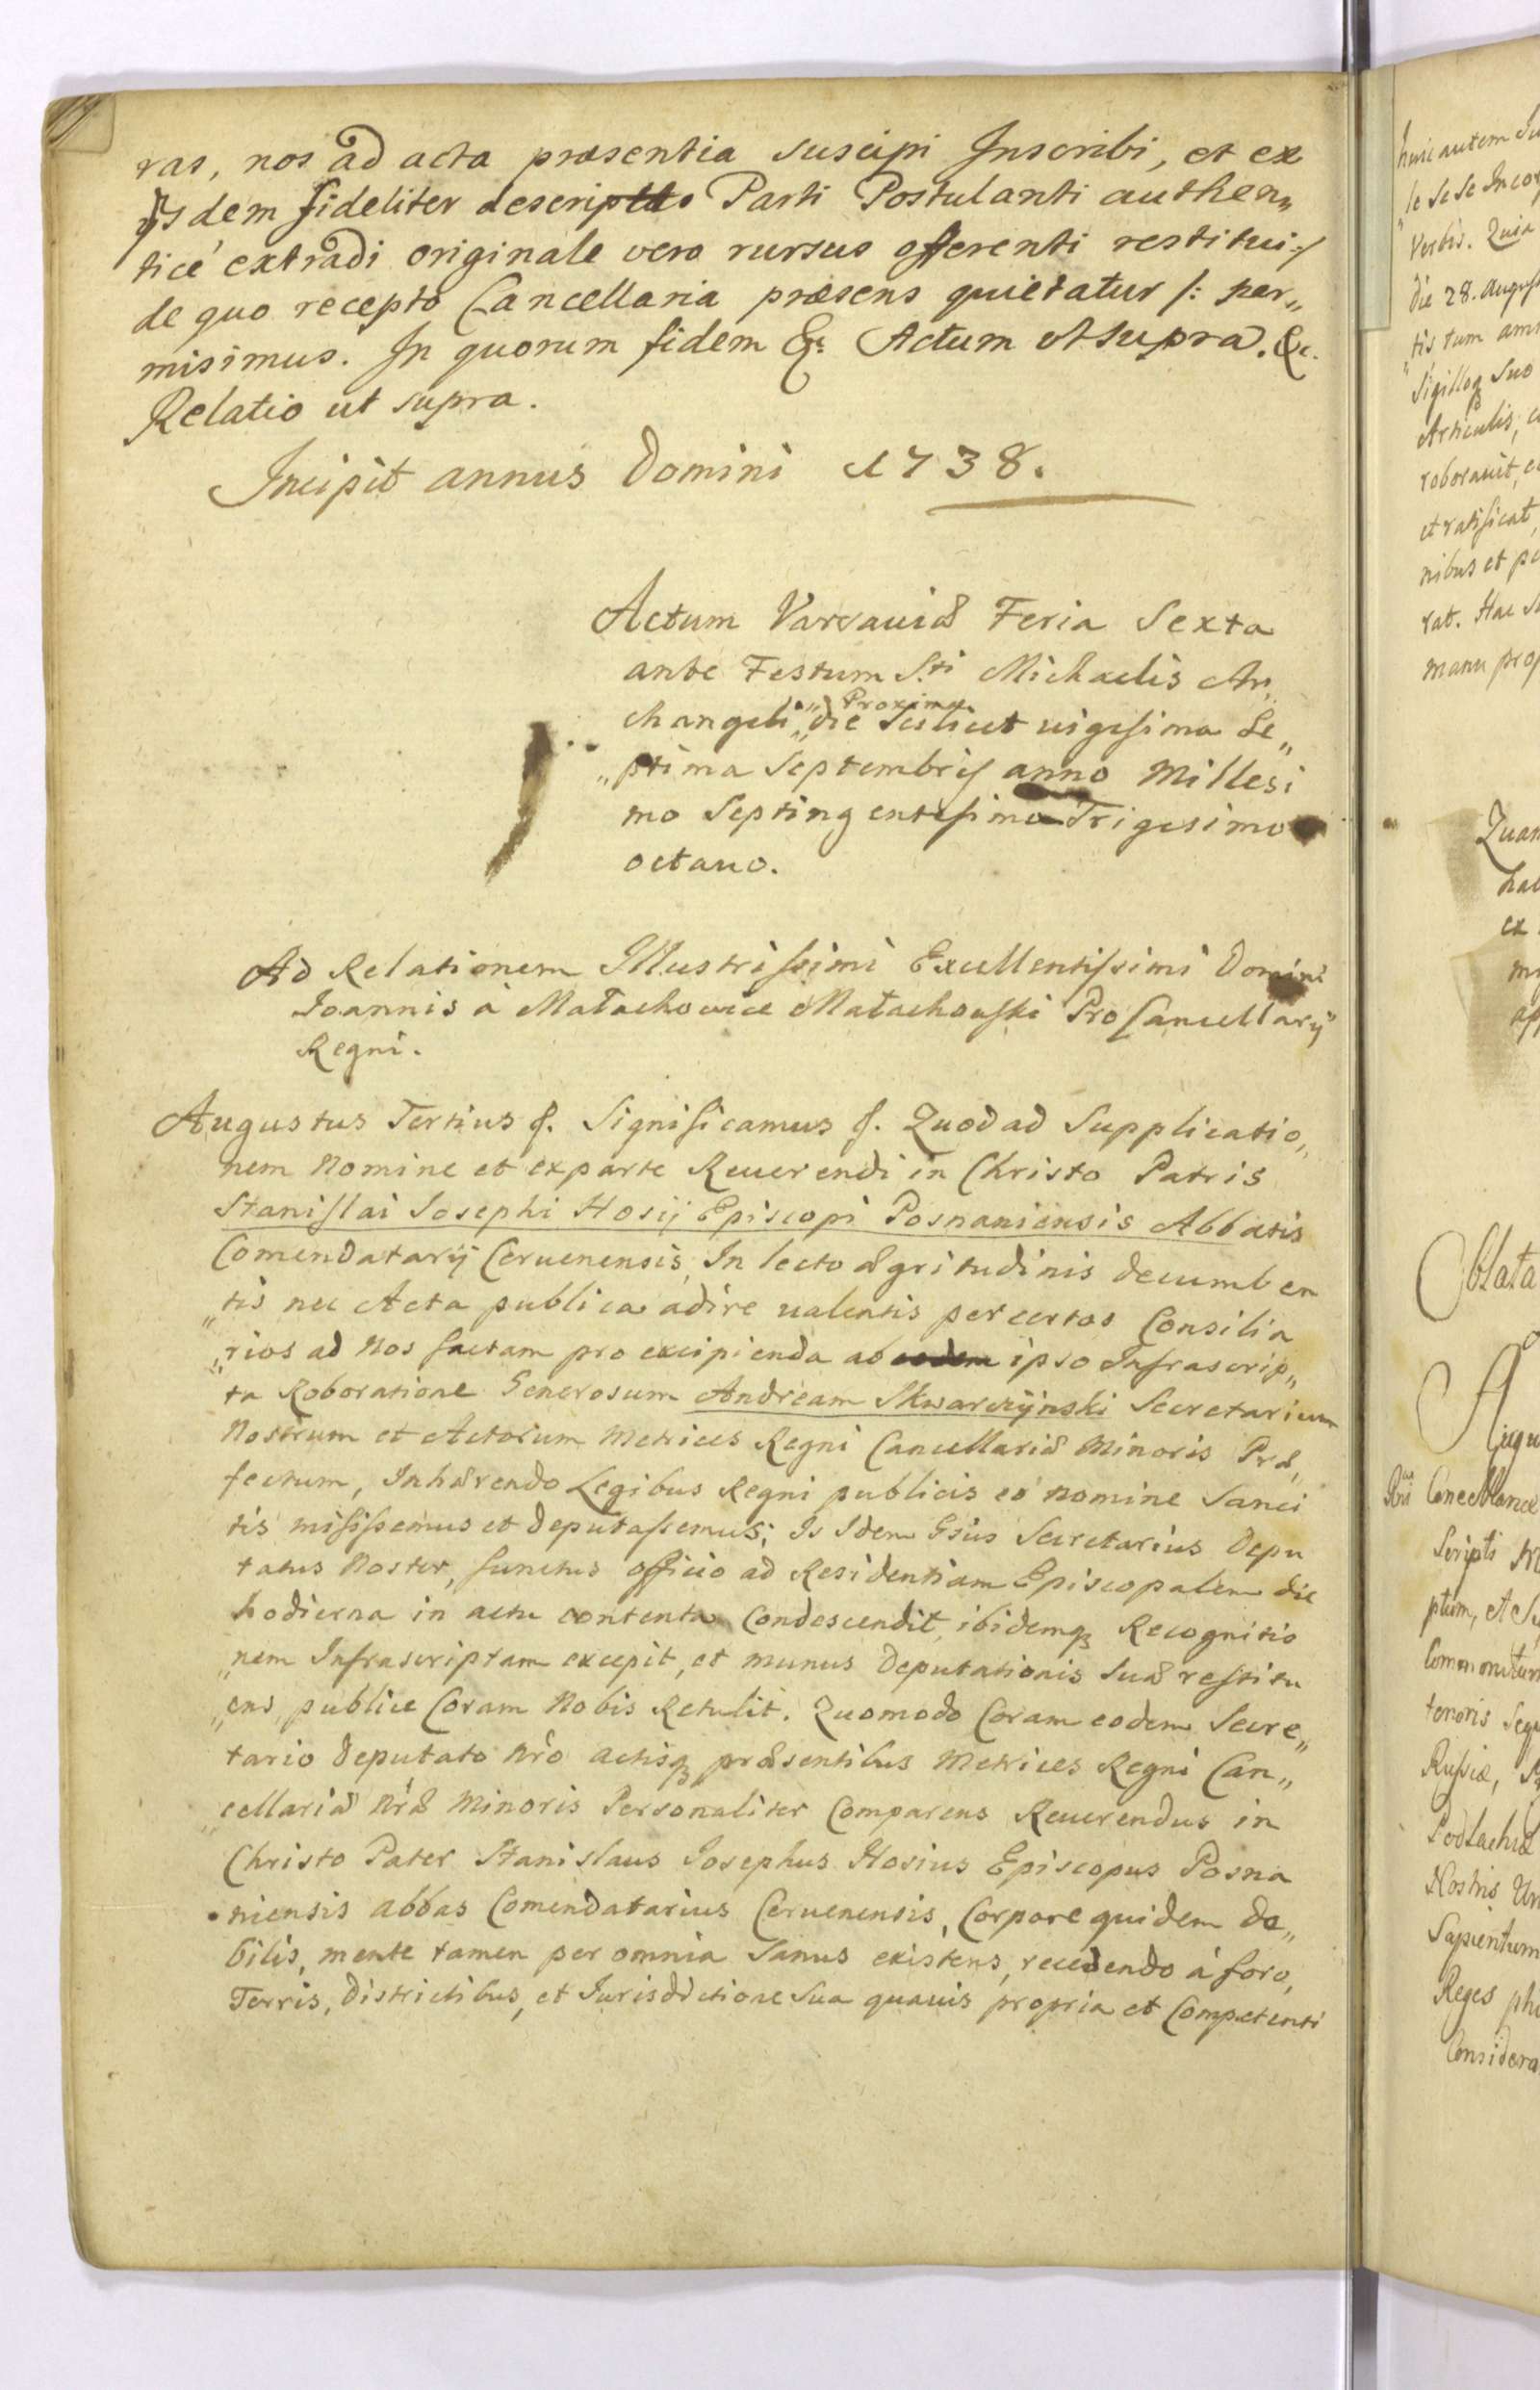 ras, nos ad acta præsentia suscipi Inscribi, et ex
ijsdem fideliter descriptas Parti Postulanti authen„
ticé extradi originale vero rursus offerenti restitui /
de quo recepto Cancellaria præsens quietatur /: per„
misimus. In quorum fidem &c Actum ut supra. &c.
Relatio ut supra.
Incipit annus Domini 1738.
Actum Varsauiæ Feria Sexta
ante Festum S.ti Michaelis Ar„
changeli „ Proxima
die Scilicet uigesima Se„
„ptima Septembris anno Millesi
mo Septingentesimo Trigesimo
octauo.
Ad Relationem Illustrissimi Excellentissimi Domini
Ioannis á Małachowice Małachouski Pro Cancellarij
Regni.
Augustus Tertius &. Significamus &. Quod ad Supplicatio„
nem Nomine et ex parte Reuerendi in Christo Patris
Stanislai Iosephi Hosij Episcopi Posnaniensis Abbatis
Comendatarij Ceruenensis, In lecto ægritudinis decumben
„tis nec Acta publica adire ualentis per certos Consilia
„rios ad Nos factam pro excipienda ab eodem ipso Infrascrip„
ta Roboratione Generosum Andream Skwarczÿnski Secretarium
Nostrum et Actorum Metrices Regni Cancellariæ Minoris Præ„
fectum, Inhærendo Legibus Regni publicis eó nomine Sanci
tis misissemus et deputassemus; Is Idem Gsus Secretarius Depu
tatus Noster, functus officio ad Residentiam Episcopalem die
hodierna in actu contenta Condescendit, ibidemq Recognitio
„nem Infrascriptam excepit, et munus deputationis suæ restitu
„ens, publice Coram Nobis Retulit. Quomodo Coram eodem Secre„
tario Deputato Nro actisq præsentibus Metrices Regni Can„
„cellariæ Nræ Minoris Personaliter Comparens Reuerendus in
Christo Pater Stanislaus Iosephus Hosius Episcopus Posna
niensis abbas Comendatarius Ceruenensis, Corpore quidem de„
bilis, mente tamen per omnia Sanus existens, recedendo á foro,
Terris, Districtibus, et Iurisdictione Sua quauis propria et Competenti
huic autem
le se se Incor
Verbis. Quia
die 28. Augus
„tis, tum
Sigilloq Suo
Articulis,
roborauit,
et ratificat,
nibus et
rat. Hac
manu prop
Quam
ex
Oblata
Augu
Cancellariæ
Scripti
ptum, et
Commonitum
tenoris Sequ
Russiæ,
Podlachiæ
Nostris
Sapientum
Reges
Considera